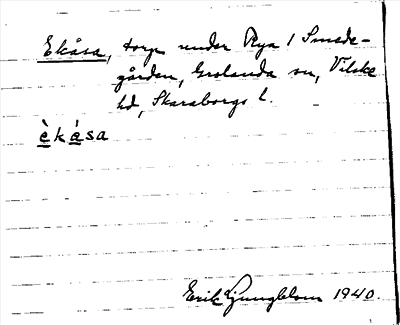 Ekåsa, torp under Rya 1 Smede-
gården, Grolanda sn, Vilske
hd, Skaraborgs l.
è k à sa
Erik Ljungblom 1940.